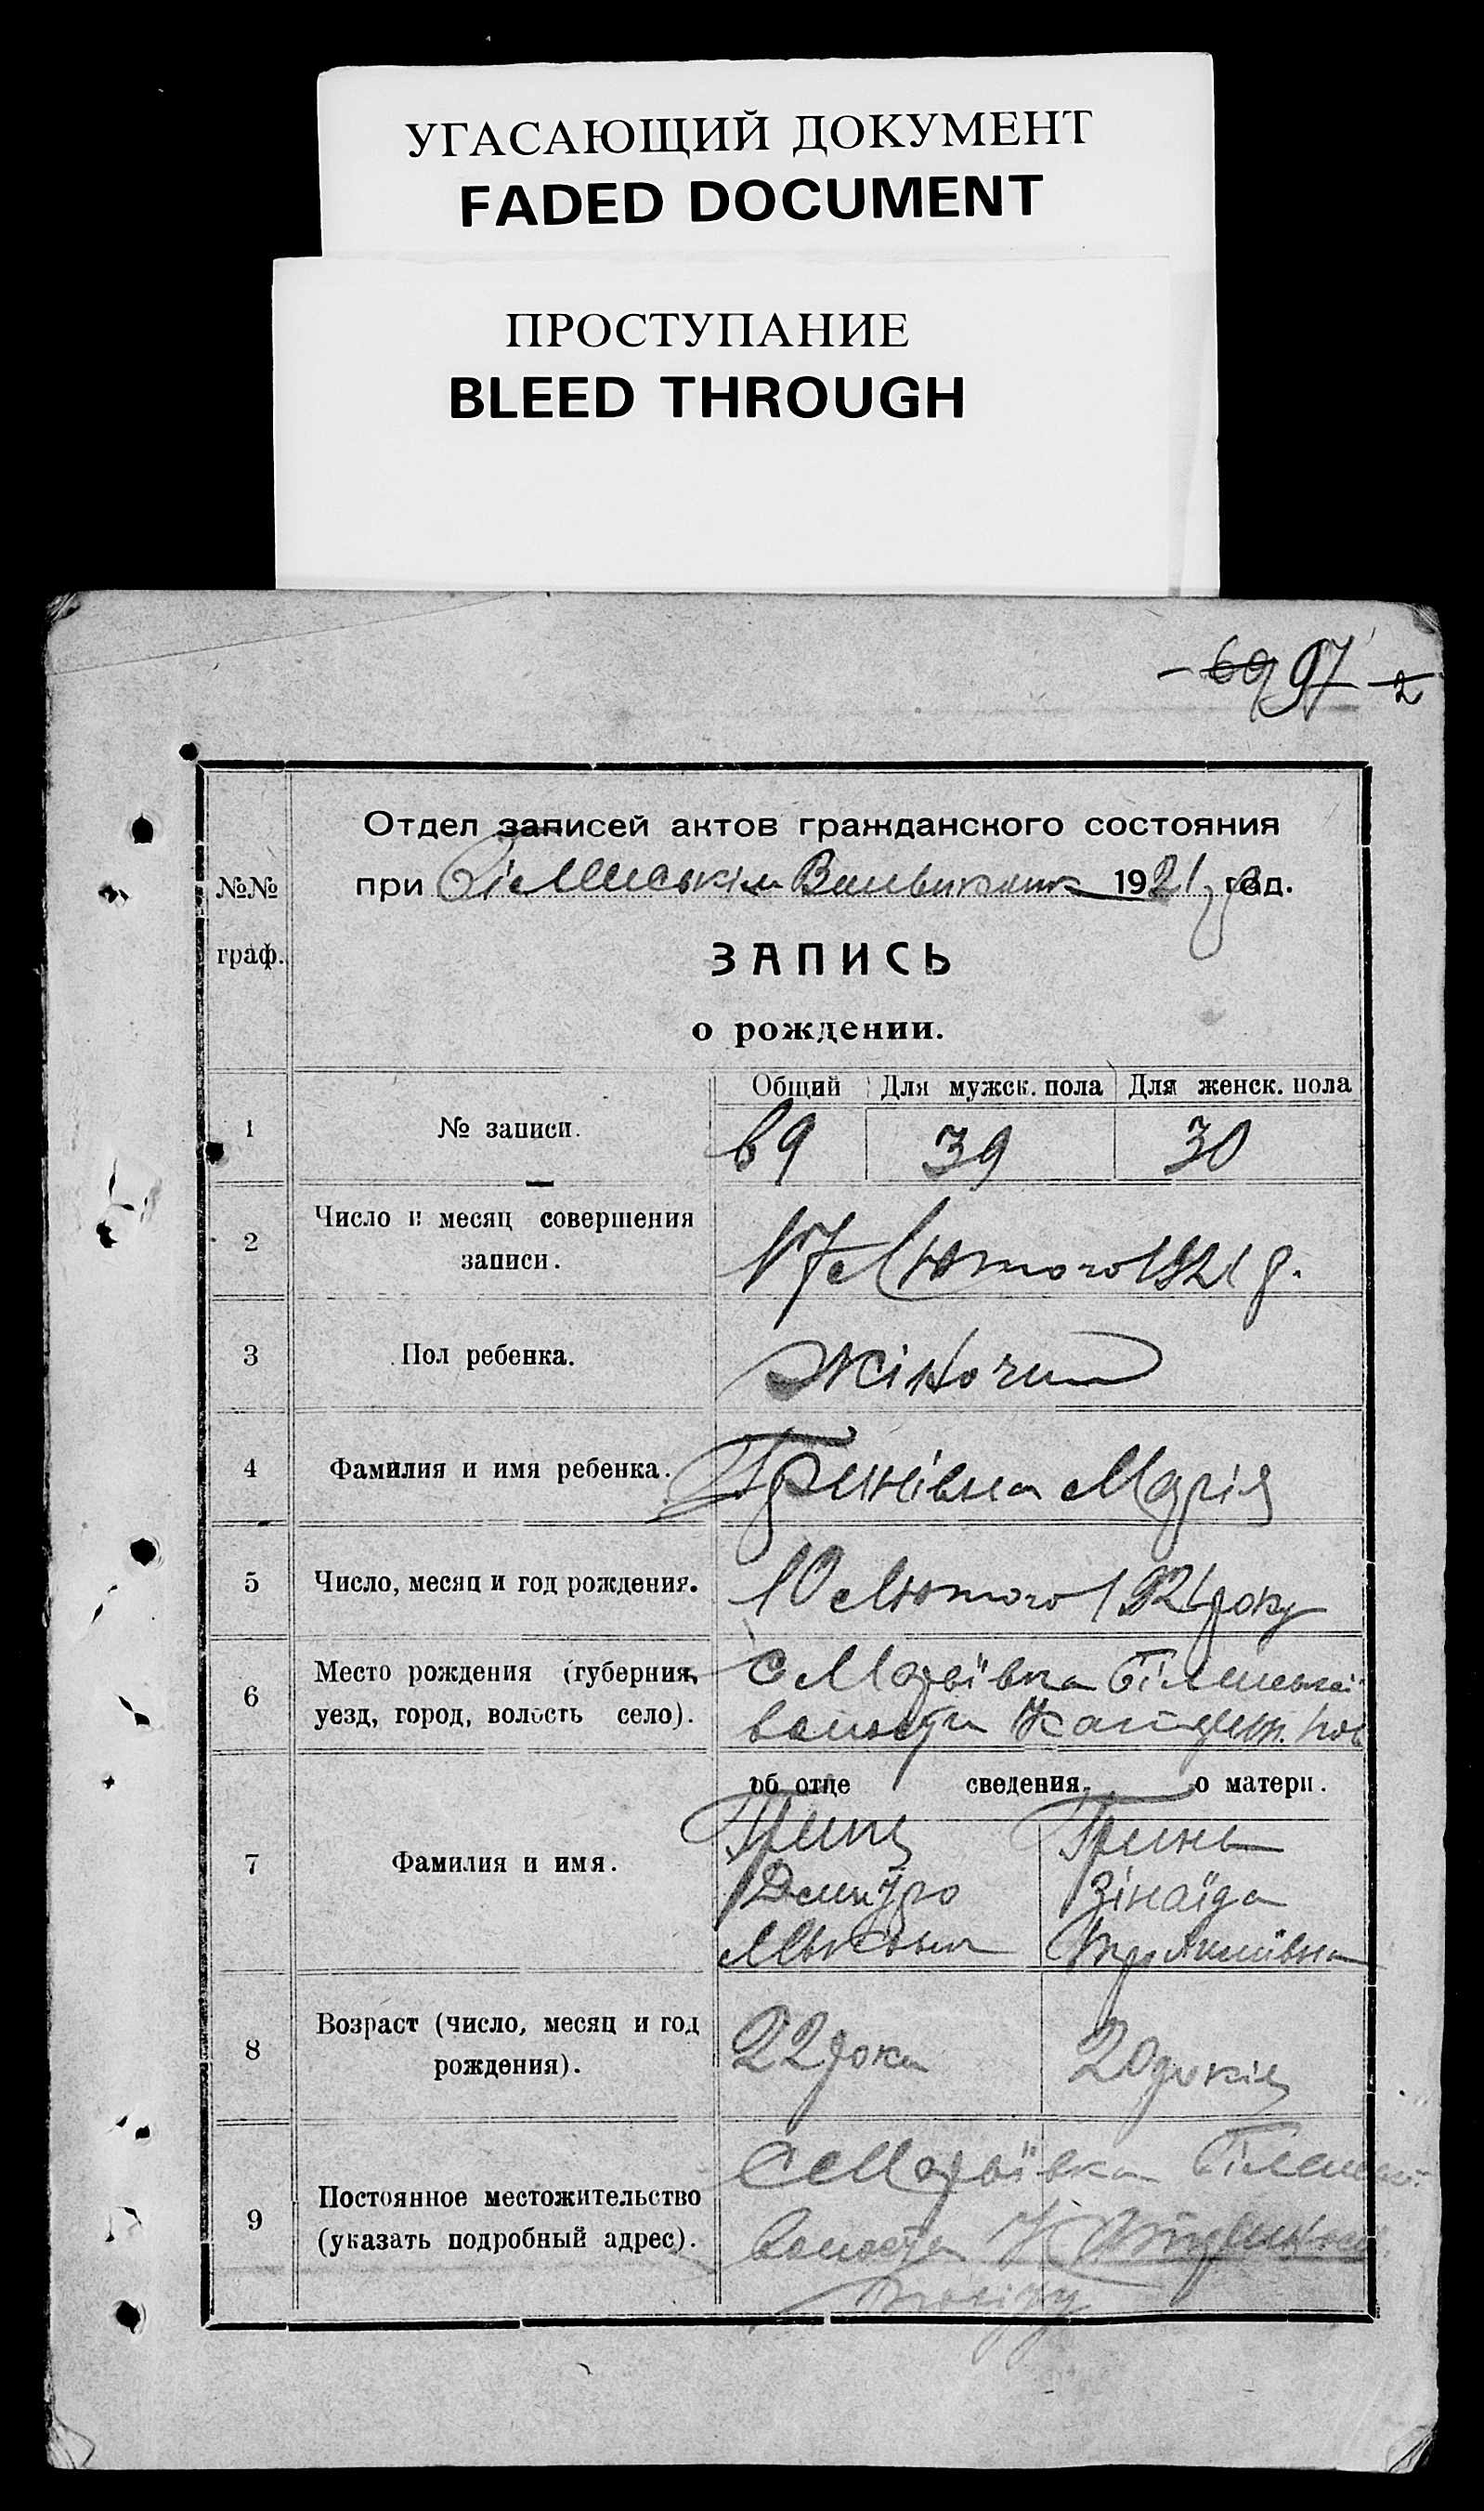 УГАСАЮЩИЙ ДОКУМЕНТ
FADED DOCUMENT
ПРОСТУПАНИЕ
BLEED THROUGH
69 97 2
Отдел записей актов гражданского состояния
№№ граф.
при 1921 год.
ЗАПИСЬ
о рождении.
Общий Для мужск. пола Для женск. пола
1 № записи. 69 39 30
2 Число и месяц совершения
записи. 17 Лютого 1921 р.
3 Пол ребенка. жіночий
4 Фамилия и имя ребенка. Марія
5 Число, месяц и год рождения. 10 Лютого 1921 року
6 Место рождения (губерния,
уезд, город, волость село).
С Мар'ївка
об отце сведения о матери.
7 Фамилия и имя.
Гринь Гринь
Дмитро Зінаїда
8 Возраст (число, месяц и год
рождения).
22 роки 20 років
9 Постоянное местожительство
(указать подробный адрес).
С Мар'ївка